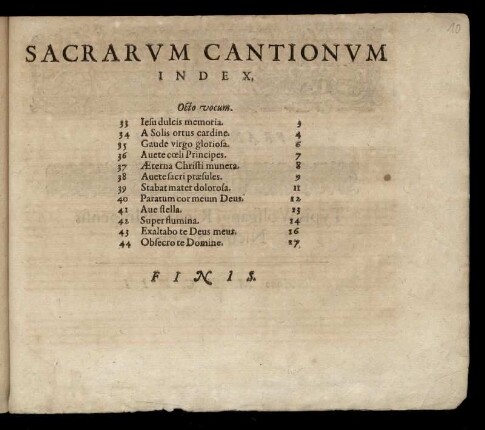 10
SACRARVM CANTIONVM
INDEX,
Octo vocum.
33 Iesu dulcis memoria. 3
34 A Solis ortus cardine. 4
35 Gaude virgo gloriosa. 6
36 Auete cœli Principes. 7
37 Æterna Christi munera. 8
38 Auete sacri præsules. 9
39 Stabat mater dolorosa. 11
40 Paratum cor meum Deus. 12
41 Aue stella. 13
42 Super flumina. 14
43 Exaltabo te Deus meus. 16
44 Obsecro te Domine. 17
FINIS.